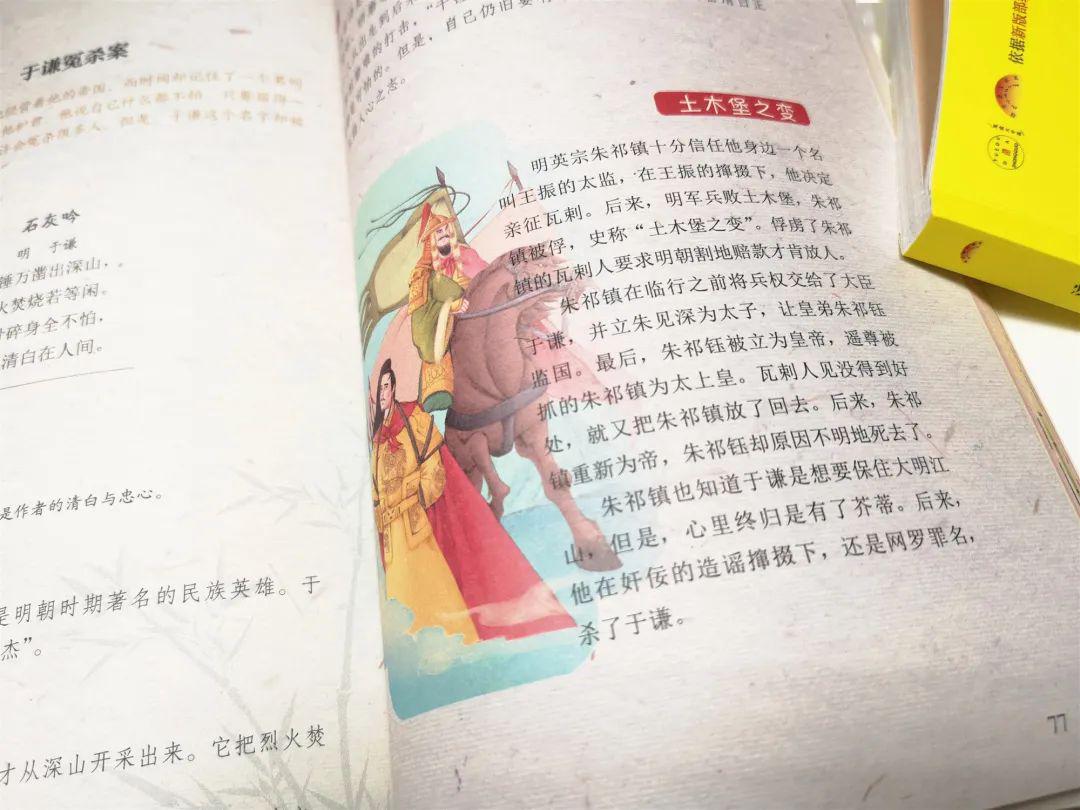 于谦冤杀案
他经营着他的帝国，而时间却记住了一个英明
石灰吟
明 于谦
锤万凿出深山，
火焚烧若等闲。
碎身全不怕，
清白在人间。
是作者的清白与忠心。
是明朝时期著名的民族英雄。于
杰”。
才从深山开采出来。它把烈火焚
的打击，
的。但是，自己仍旧要
人心之态。
土木堡之变
明英宗朱祁镇十分信任他身边一个名
叫王振的太监，在王振的撺掇下，他决定
亲征瓦剌。后来，明军兵败土木堡，朱祁
镇被俘，史称“土木堡之变”。俘虏了朱祁
镇的瓦剌人要求明朝割地赔款才肯放人。
朱祁镇在临行之前将兵权交给了大臣
于谦，并立朱见深为太子，让皇弟朱祁钰
监国。最后，朱祁钰被立为皇帝，遥尊被
抓的朱祁镇为太上皇。瓦剌人见没得到好
处，就又把朱祁镇放了回去。后来，朱祁
镇重新为帝，朱祁钰却原因不明地死去了。
朱祁镇也知道于谦是想要保住大明江
山，但是，心里终归是有了芥蒂。后来，
他在奸佞的造谣撺掇下，还是网罗罪名，
杀了于谦。
77
依据新版部